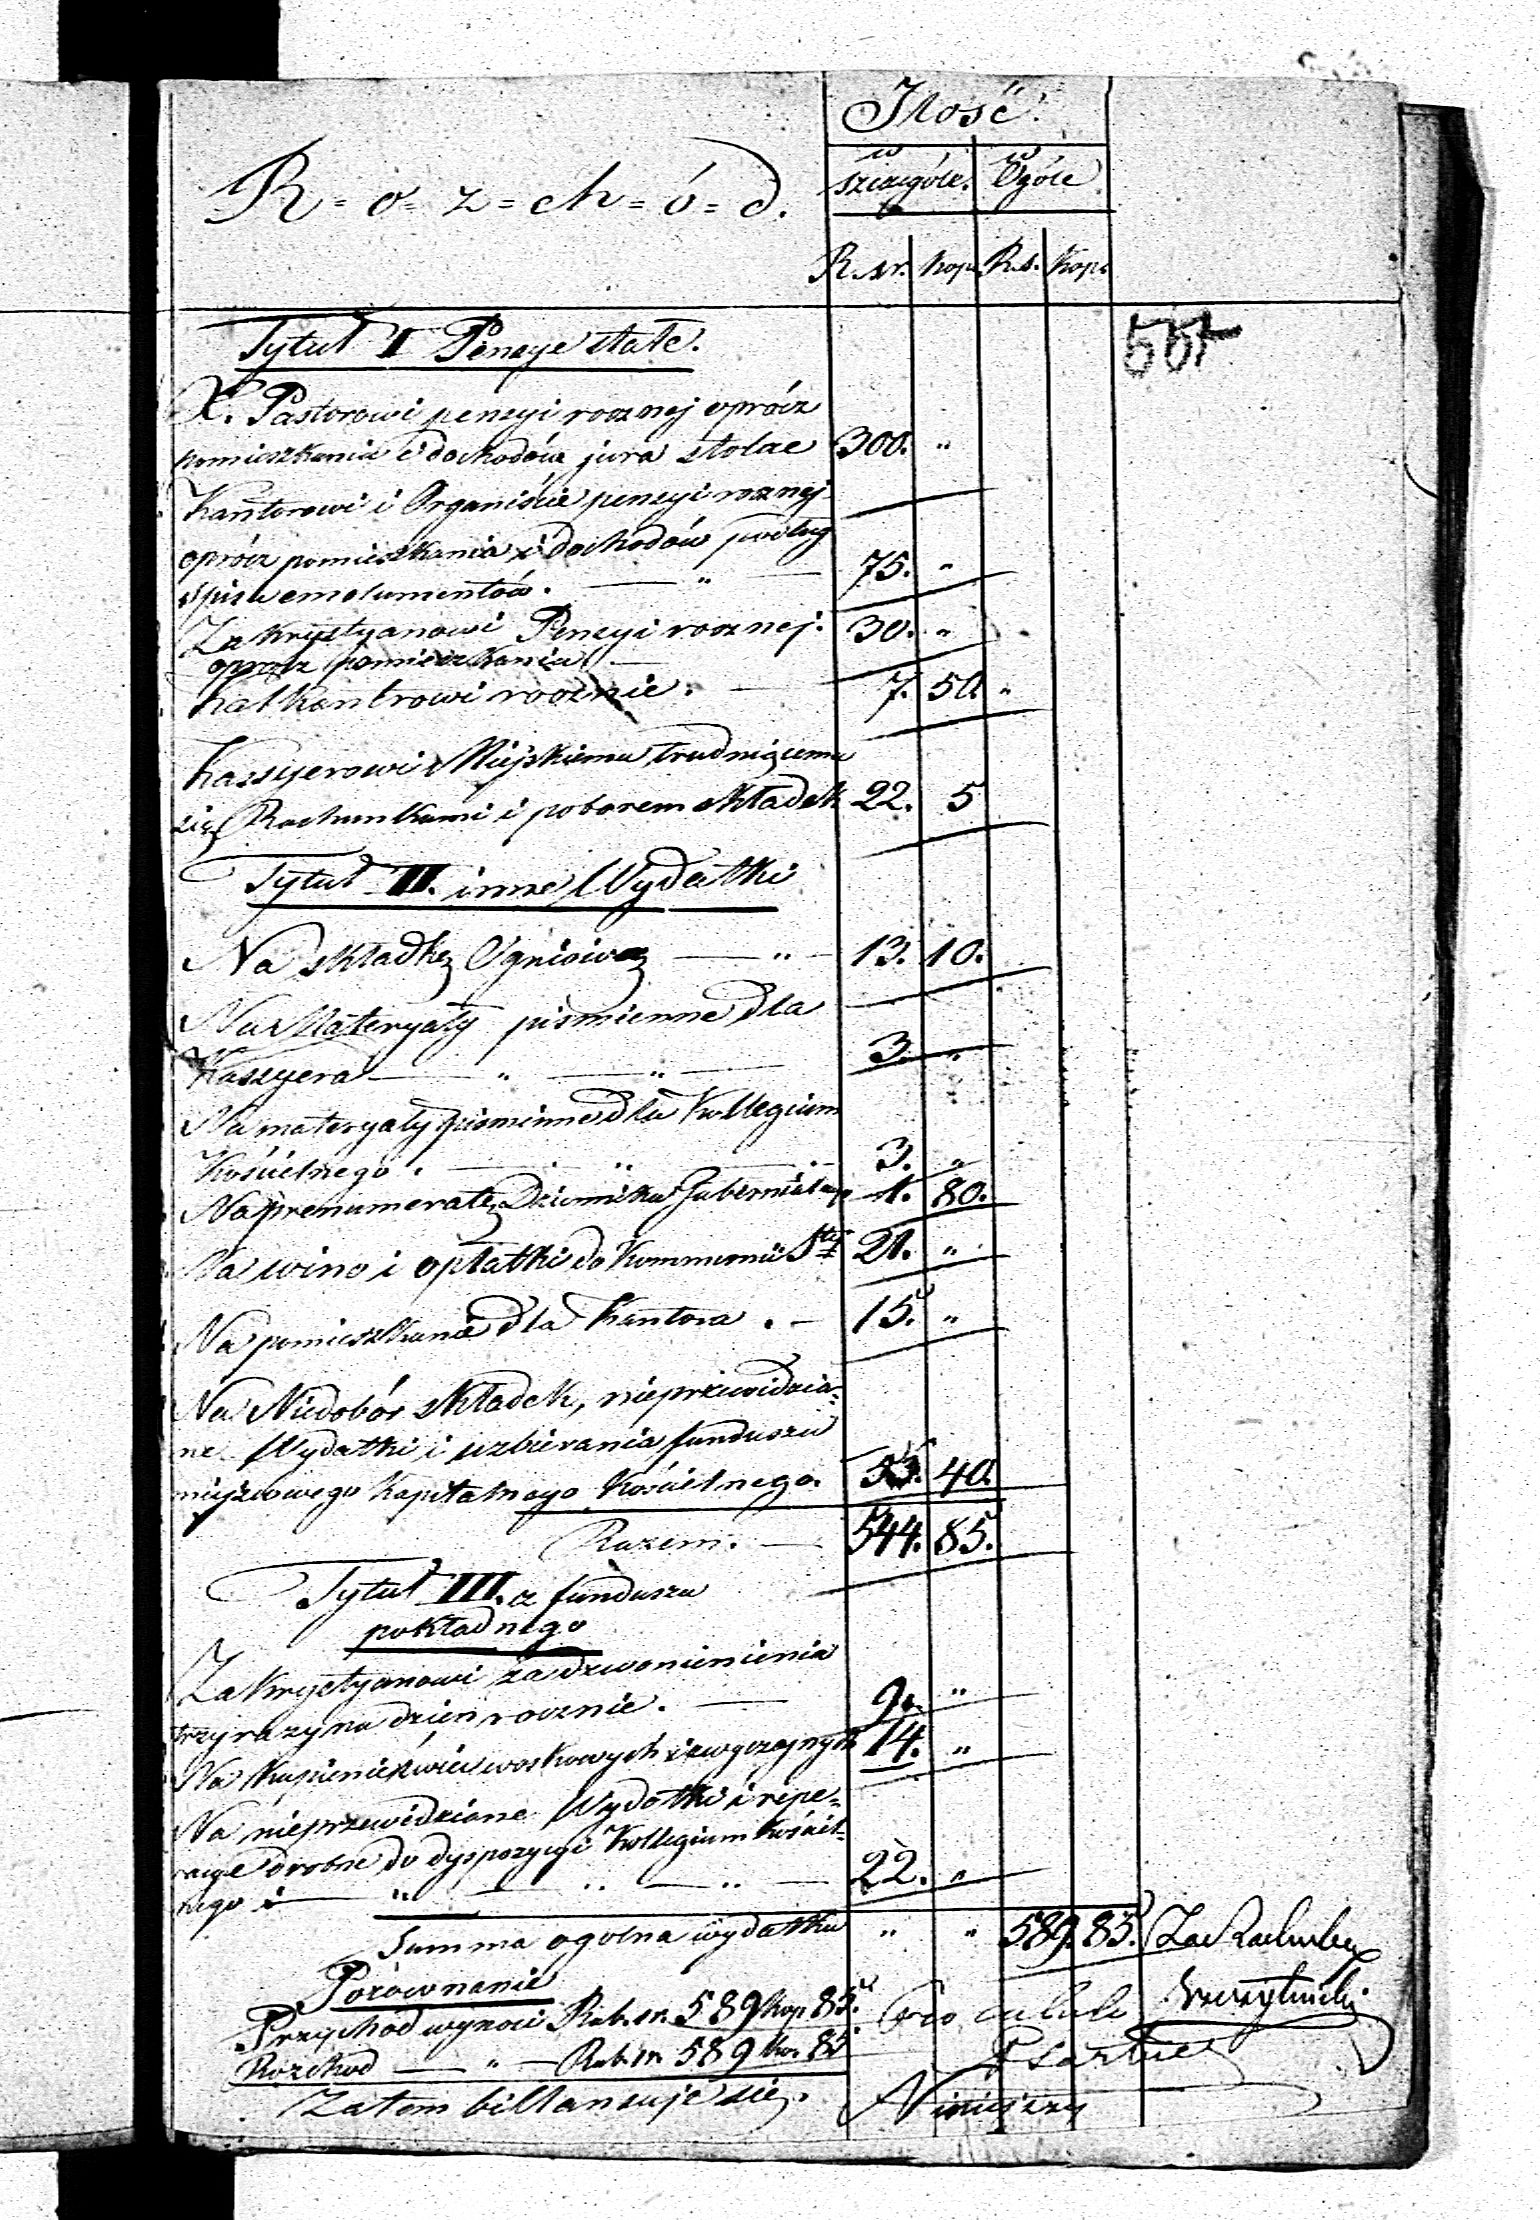 R=o=z=ch=ó=d.
Ilość.
w szczególe. w Ogóle
R. sr. kop. R. s. Kop.
Tytuł I Pensye stałe.
X. Pastorowi pensyi rocznej oprócz
pomieszkania i dochodów jura stolae 300. "
Kantorowi i Organiście pensyi rocznej
oprócz pomieszkania i dochodów podług
spisu emolumentów. — " — 75. "
Zakrystyanowi Pensyi rocznej. 30. "
oprócz pomieszkania —
Kalkantrowi rocznie. — 7. 50. "
Kassyerowi Miejskiemu trudniącemu
się Rachunkami i poborem składek 22. 5
Tytuł II. inne Wydatki
Na składkę Ogniową — " — 13. 10.
Na Materyały pismienne dla
Kassyera — " — " — 3. "
Na materyały pismienne dla Kollegium
Kościelnego. — " — 3. "
Na prenumeratę Dziennika Gubernial 1. 80.
Na wino i opłatki do Kommunii Stej 21. "
Na pomieszkanie dla Kantora. — 15. "
Na Niedobór składek, nieprzewidzia=
ne Wydatki i uzbierania funduszu
miejscowego Kapitalnego Kościelnego. 53. 40.
Razem. — 544. 85.
Tytuł III. z funduszu
pokładnego
Zakrystyanowi za dzwonienienia
trzy razy na dzień rocznie. — 9. "
Na kupienie świec woskowych i zwyczajnych 14. "
Na nieprzewidziane Wydatki i repe=
racye drobne do dyspozycyi Kollegium Kościel=
nego — " — " — " — 22. "
Summa ogolna wydatku " " 589. 85.
Porównanie
Przychód wynosi Rub. sr. 589 kop 85.
Rozchod — " — Rub. sr. 589 ko. 85
Zatem billansuje się.
Niniejszy
551